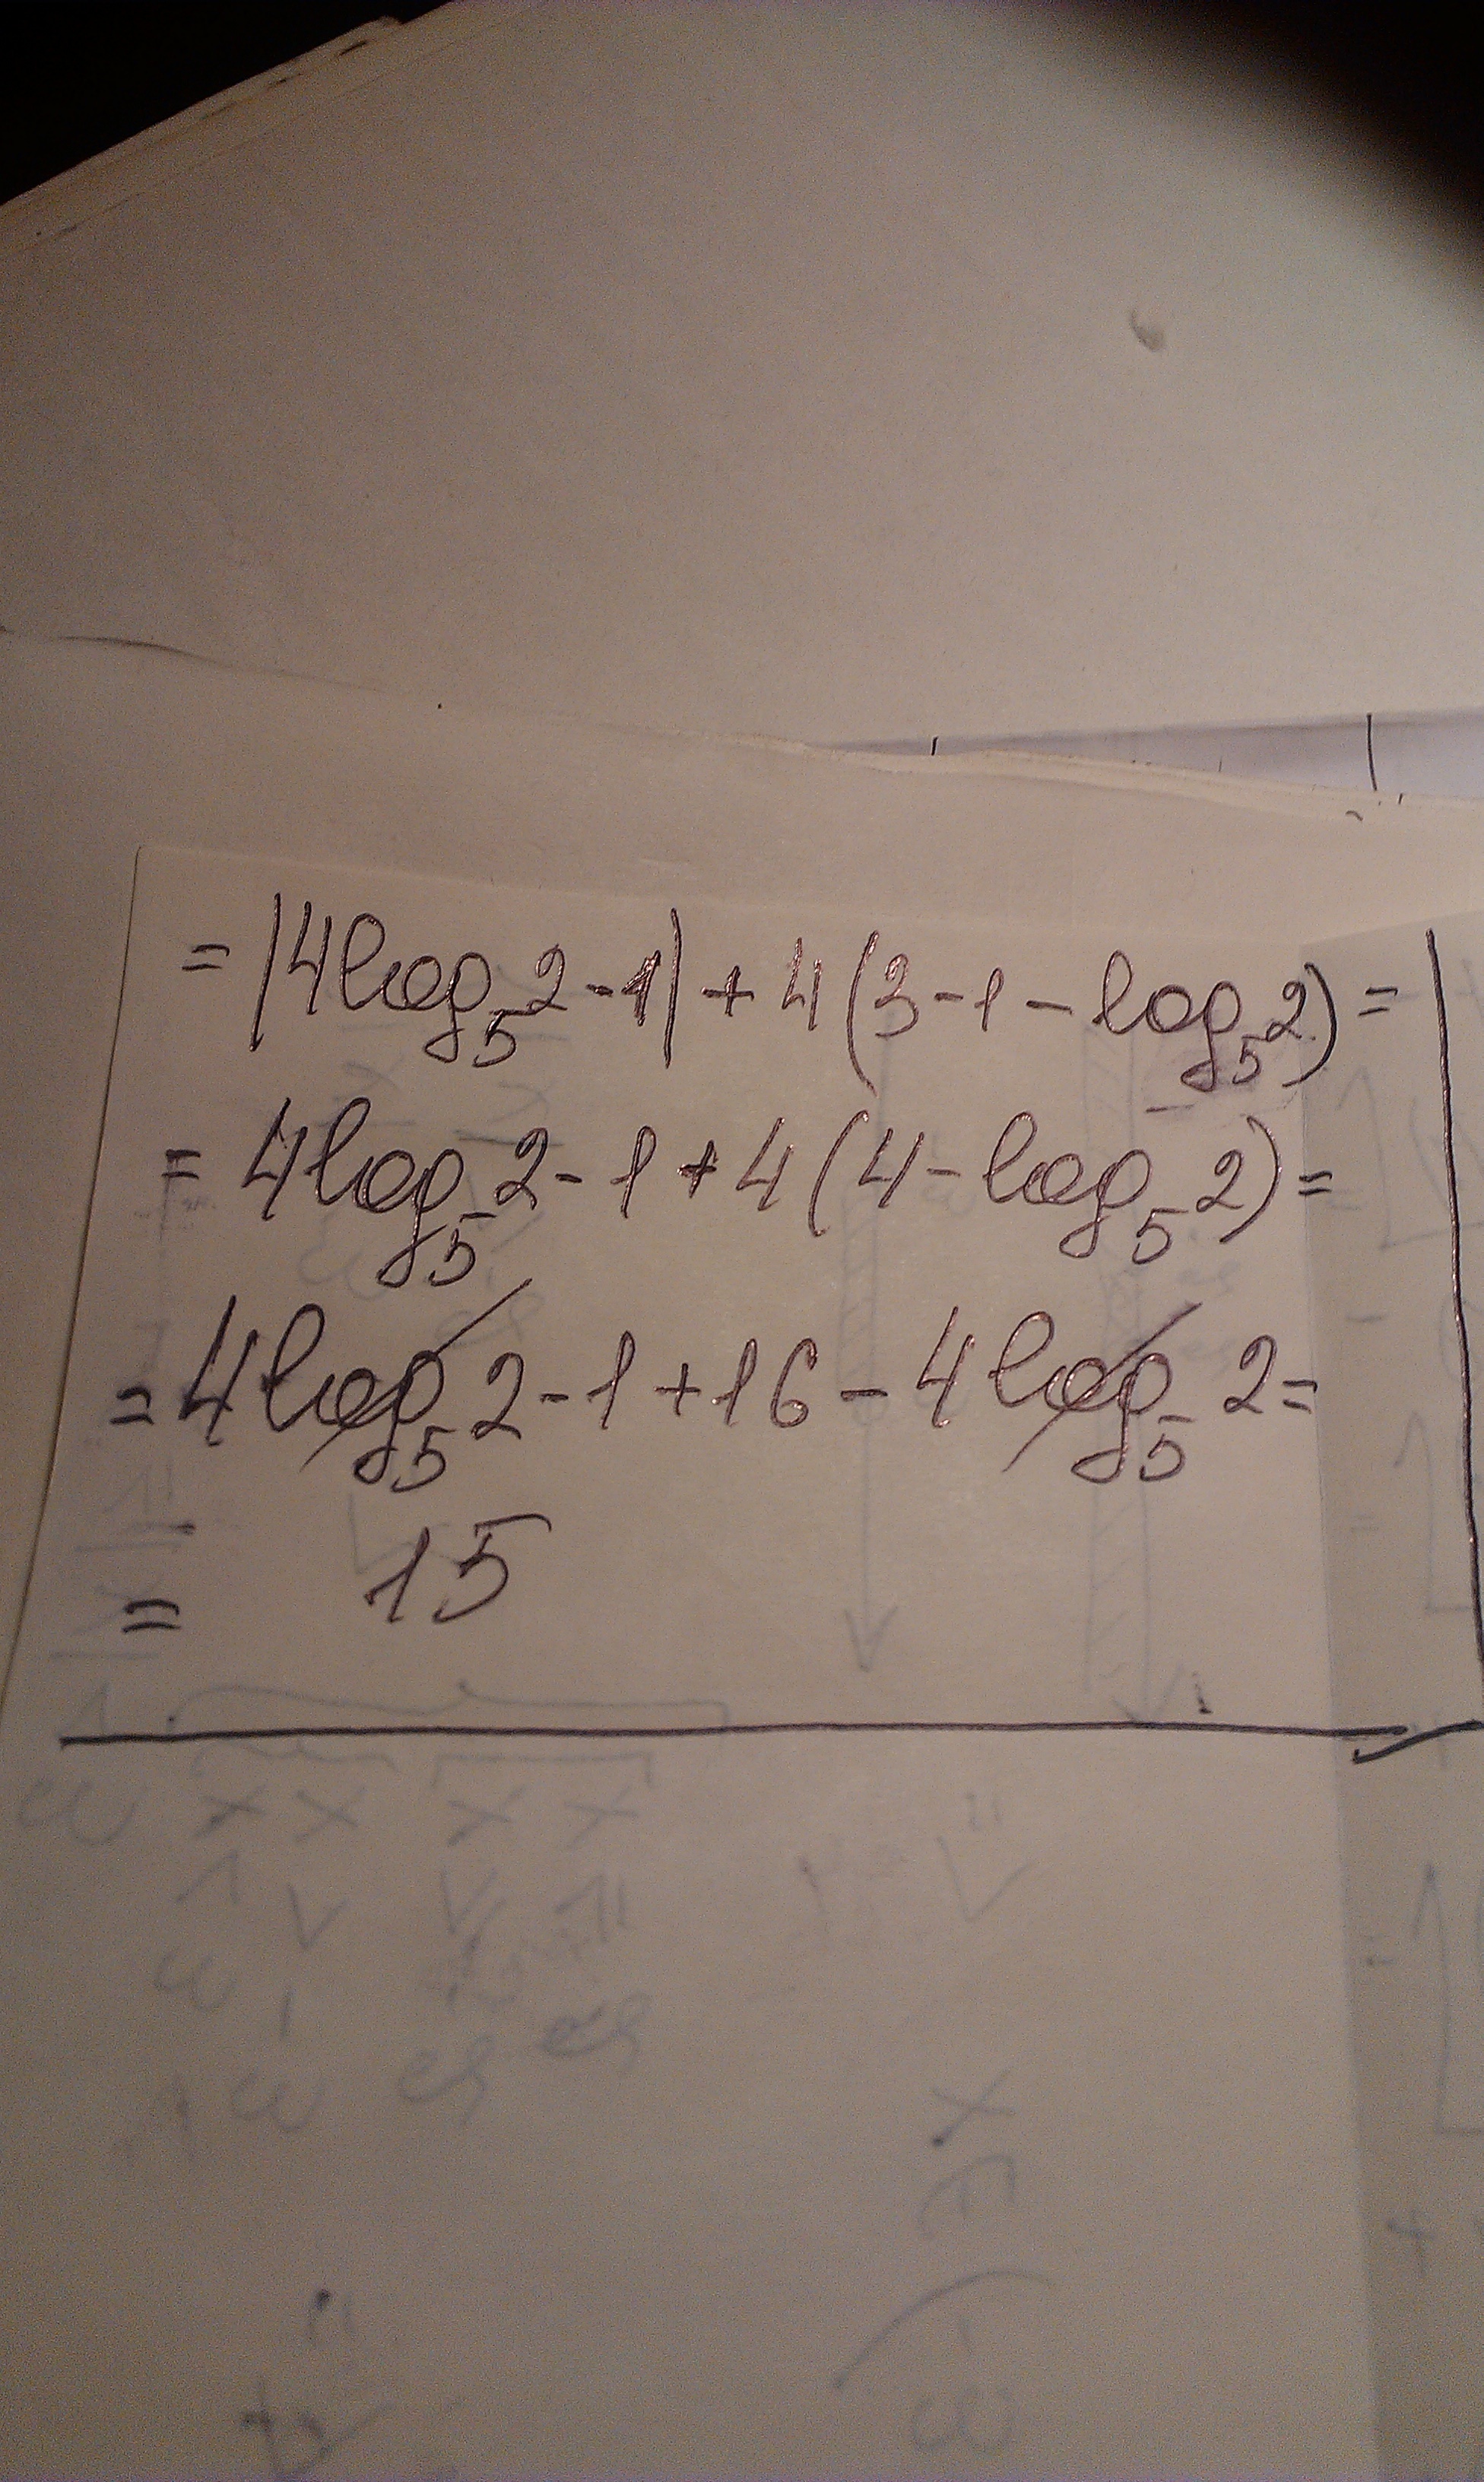 = |4log₅2 - 1| + 4(3 - 1 - log₅2) =
= 4log₅2 - 1 + 4(4 - log₅2) =
= 4log₅2 - 1 + 16 - 4log₅2 =
= 15